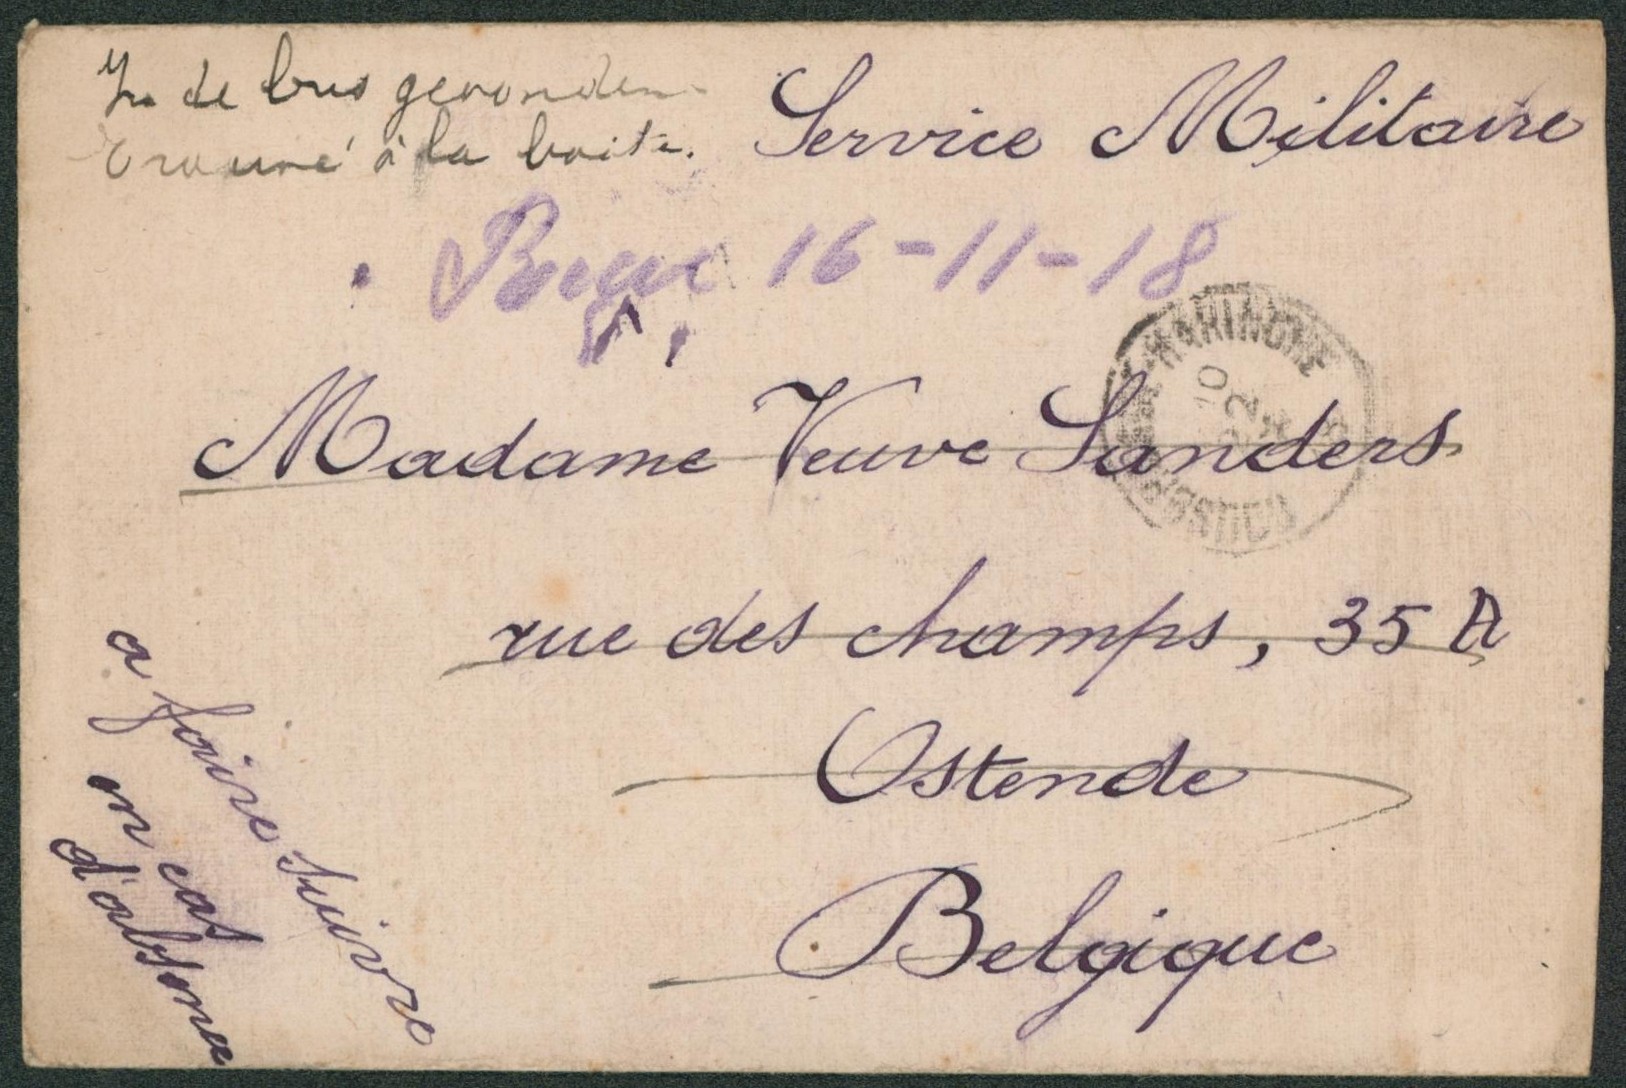 In de bus gevonden
trouvé à la boite.
Service Militaire
16-11-18
10
Madame Veuve Sanders
rue des champs, 35 A
Ostende
Belgique
a faire suivre
en cas
d'absence